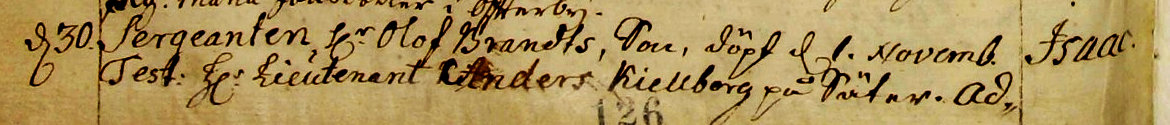 Maria Johansdotter i Österby.
d 30. Sergeanten, Hr Olof Brandts, Son, döpt d 1. Novemb. Isaac.
Test. Hr. Lieutenant Anders Kiellberg på Säter. Ad„
126